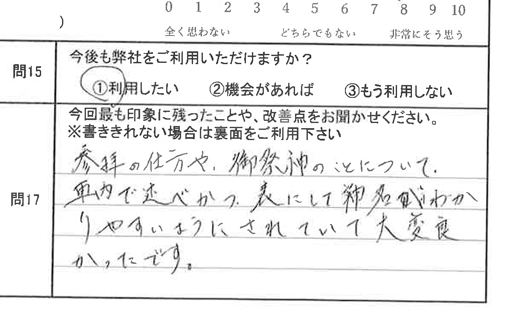 0 1 2 3 4 5 6 7 8 9 10
) 全く思わない どちらでもない 非常にそう思う
問15 今後も弊社をご利用いただけますか？
①利用したい ②機会があれば ③もう利用しない
今回最も印象に残ったことや、改善点をお聞かせください。
※書ききれない場合は裏面をご利用下さい
問17 参拝の仕方や、御祭神のことについて、
車内で述べかつ、表にして神名がわか
りやすいようにされていて大変良
かったです。